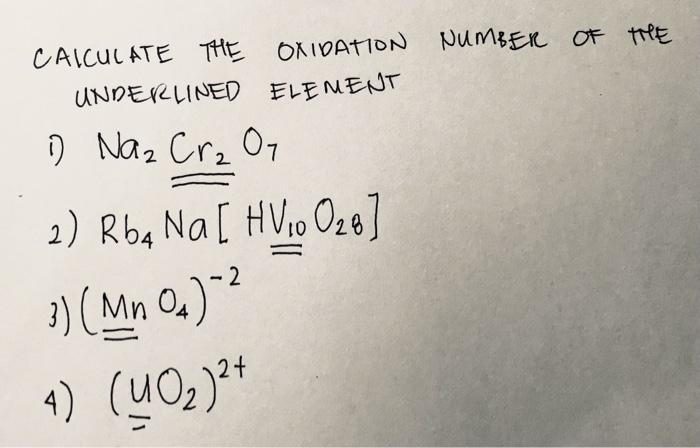 CALCULATE THE OXIDATION NUMBER OF THE
UNDERLINED ELEMENT
1) Na₂ Cr₂ O₇
2) Rb₄ Na [ HV₁₀ O₂₈ ]
3) (Mn O₄)⁻²
4) (UO₂)²⁺